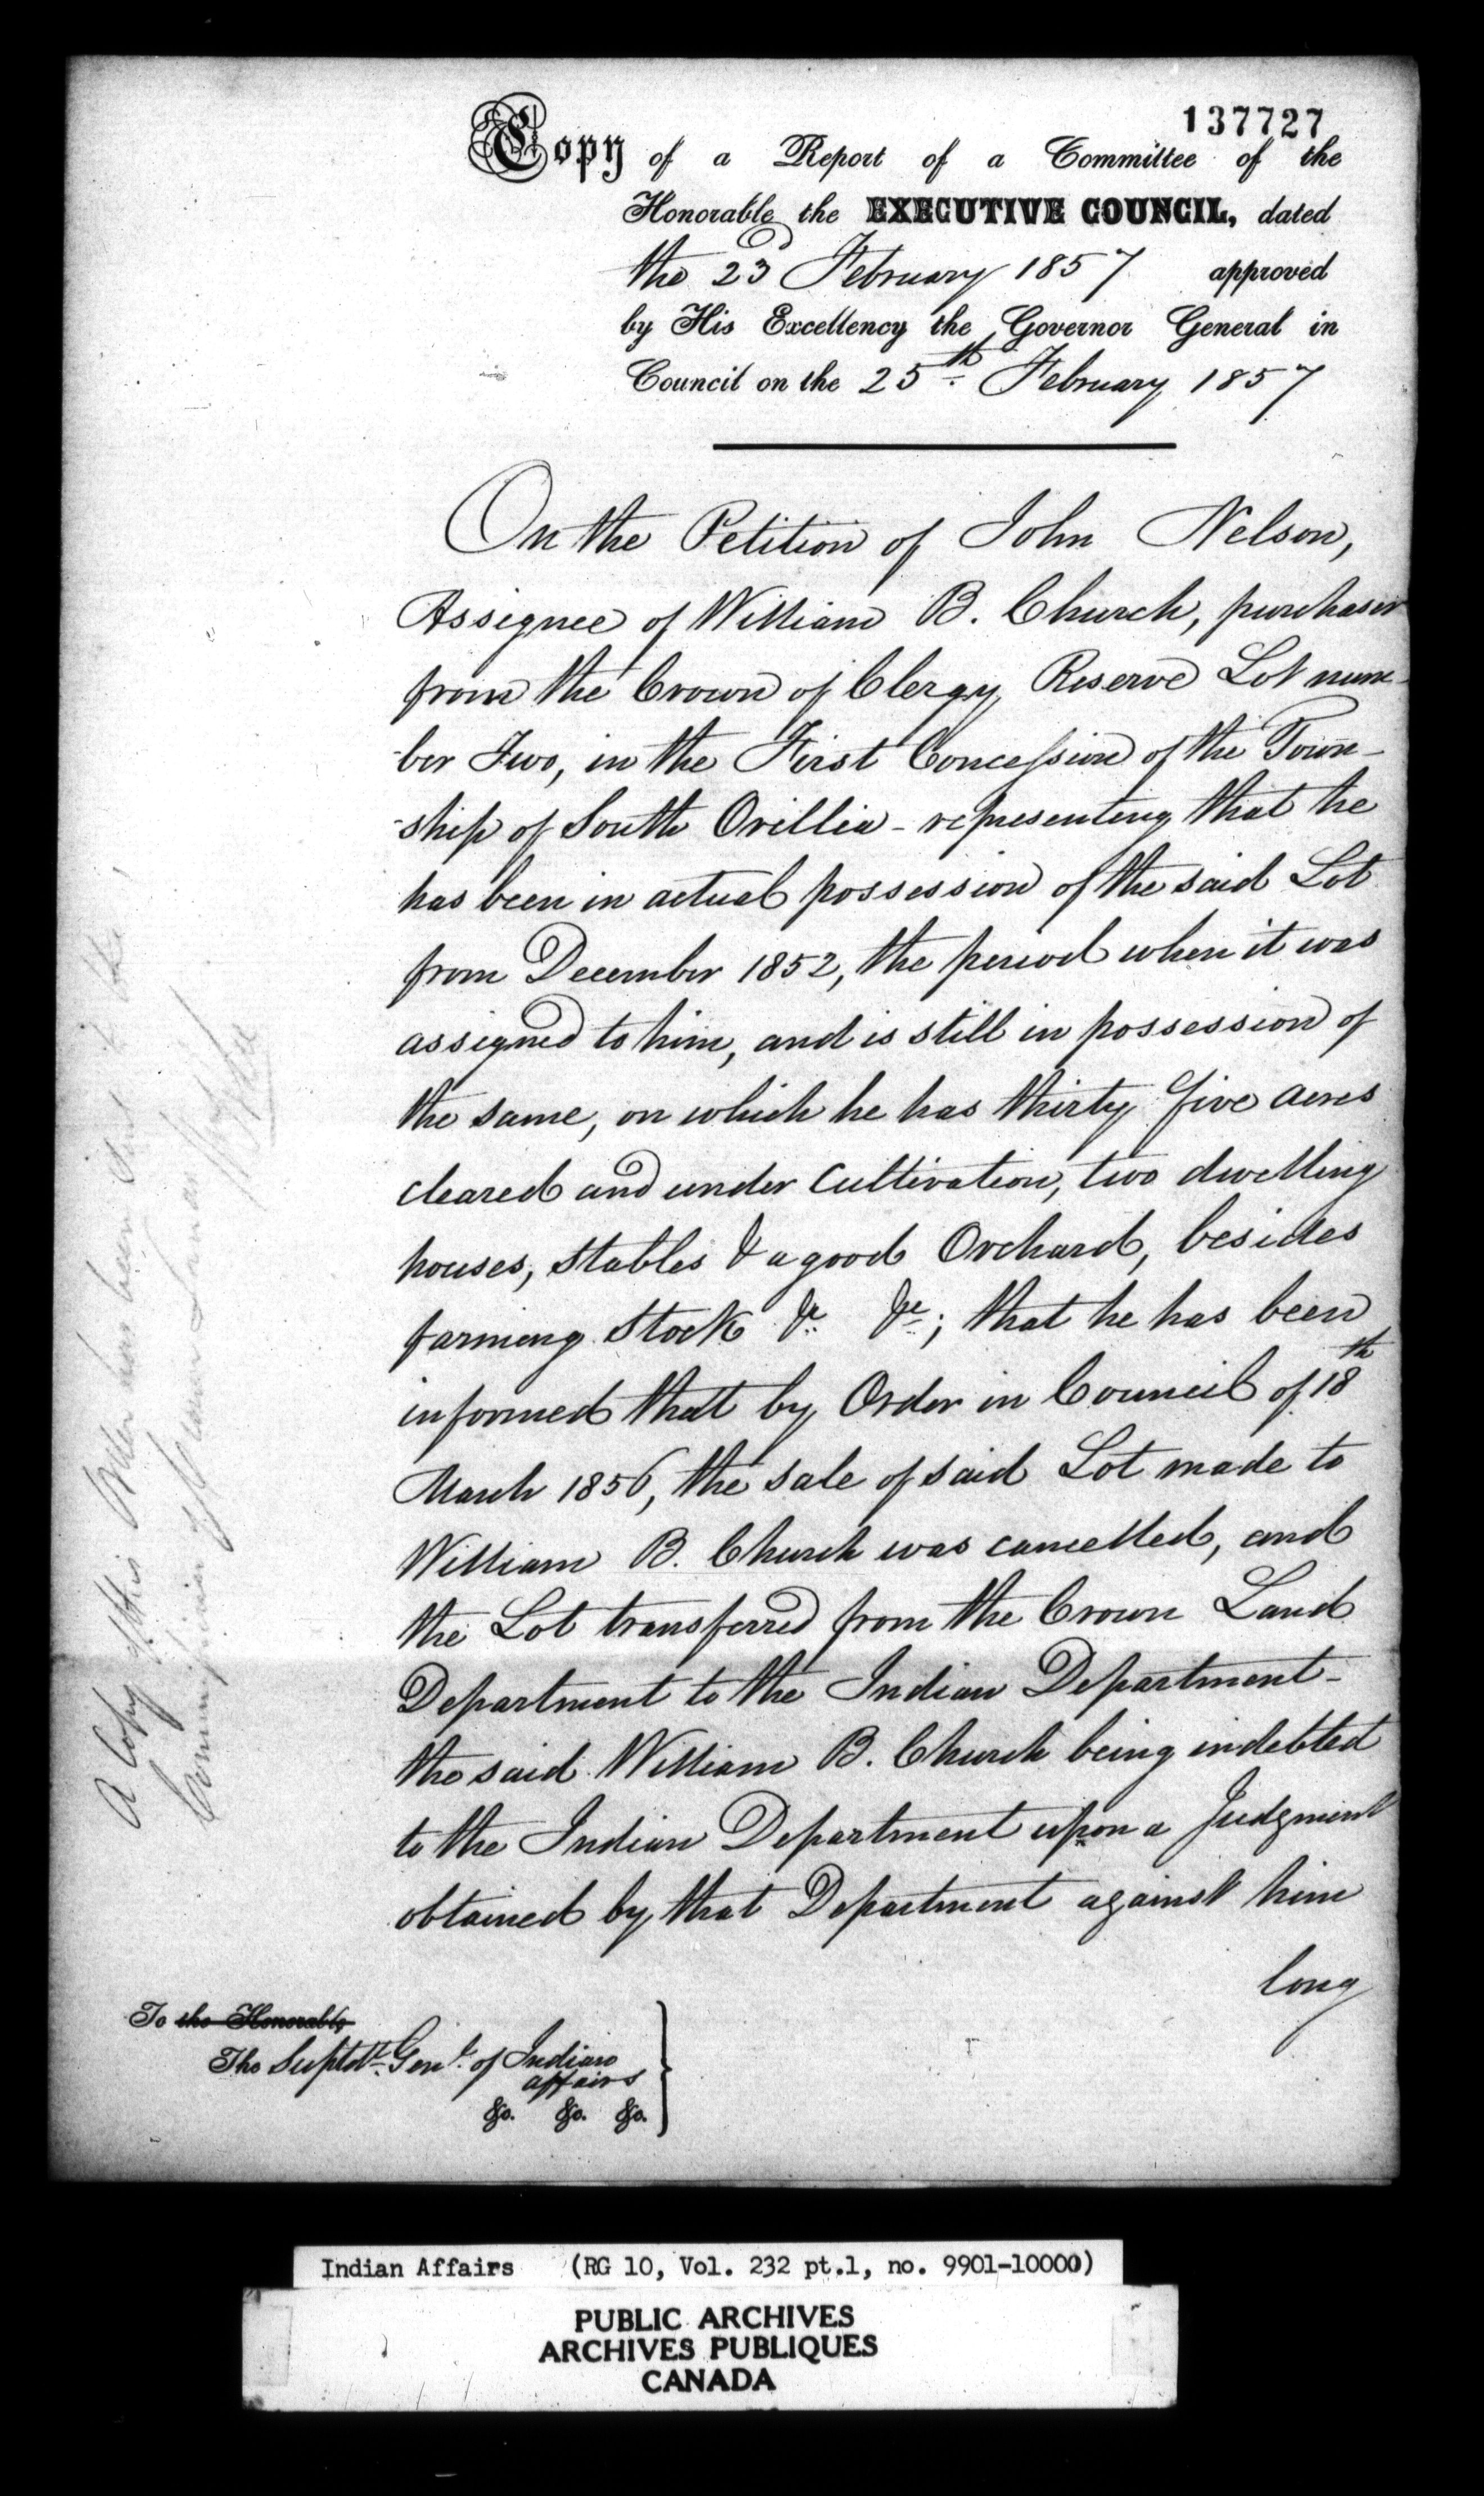 137727
Copy of a Report of a Committee of the
Honorable the EXECUTIVE COUNCIL, dated
the 23d February 1857 approved
by His Excellency the Governor General in
Council on the 25th February 1857
On the Petition of John Nelson,
Assignee of William B. Church, purchaser
from the Crown of Clergy Reserve Lot num-
-ber Two, in the First Concession of the Town-
-ship of South Orillia - representing that he
has been in actual possession of the said Lot
from December 1852, the period when it was
assigned to him, and is still in possession of
the same, on which he has thirty five acres
cleared and under cultivation, two dwelling
houses, stables & a good Orchard, besides
farming Stock &c. &c.; that he has been
informed that by Order in Council of 18th
March 1856, the sale of said Lot made to
William B. Church was cancelled, and
the Lot transferred from the Crown Land
Department to the Indian Department -
the said William B. Church being indebted
to the Indian Department upon a Judgment
obtained by that Department against him
long
To the Honorable
The Suptdt. Genl. of Indian
affairs
&c. &c. &c.
A Copy of this Order has been sent to the
Commissioner of Crown Lands
Indian Affairs (RG 10, Vol. 232 pt.1, no. 9901-10000)
PUBLIC ARCHIVES
ARCHIVES PUBLIQUES
CANADA